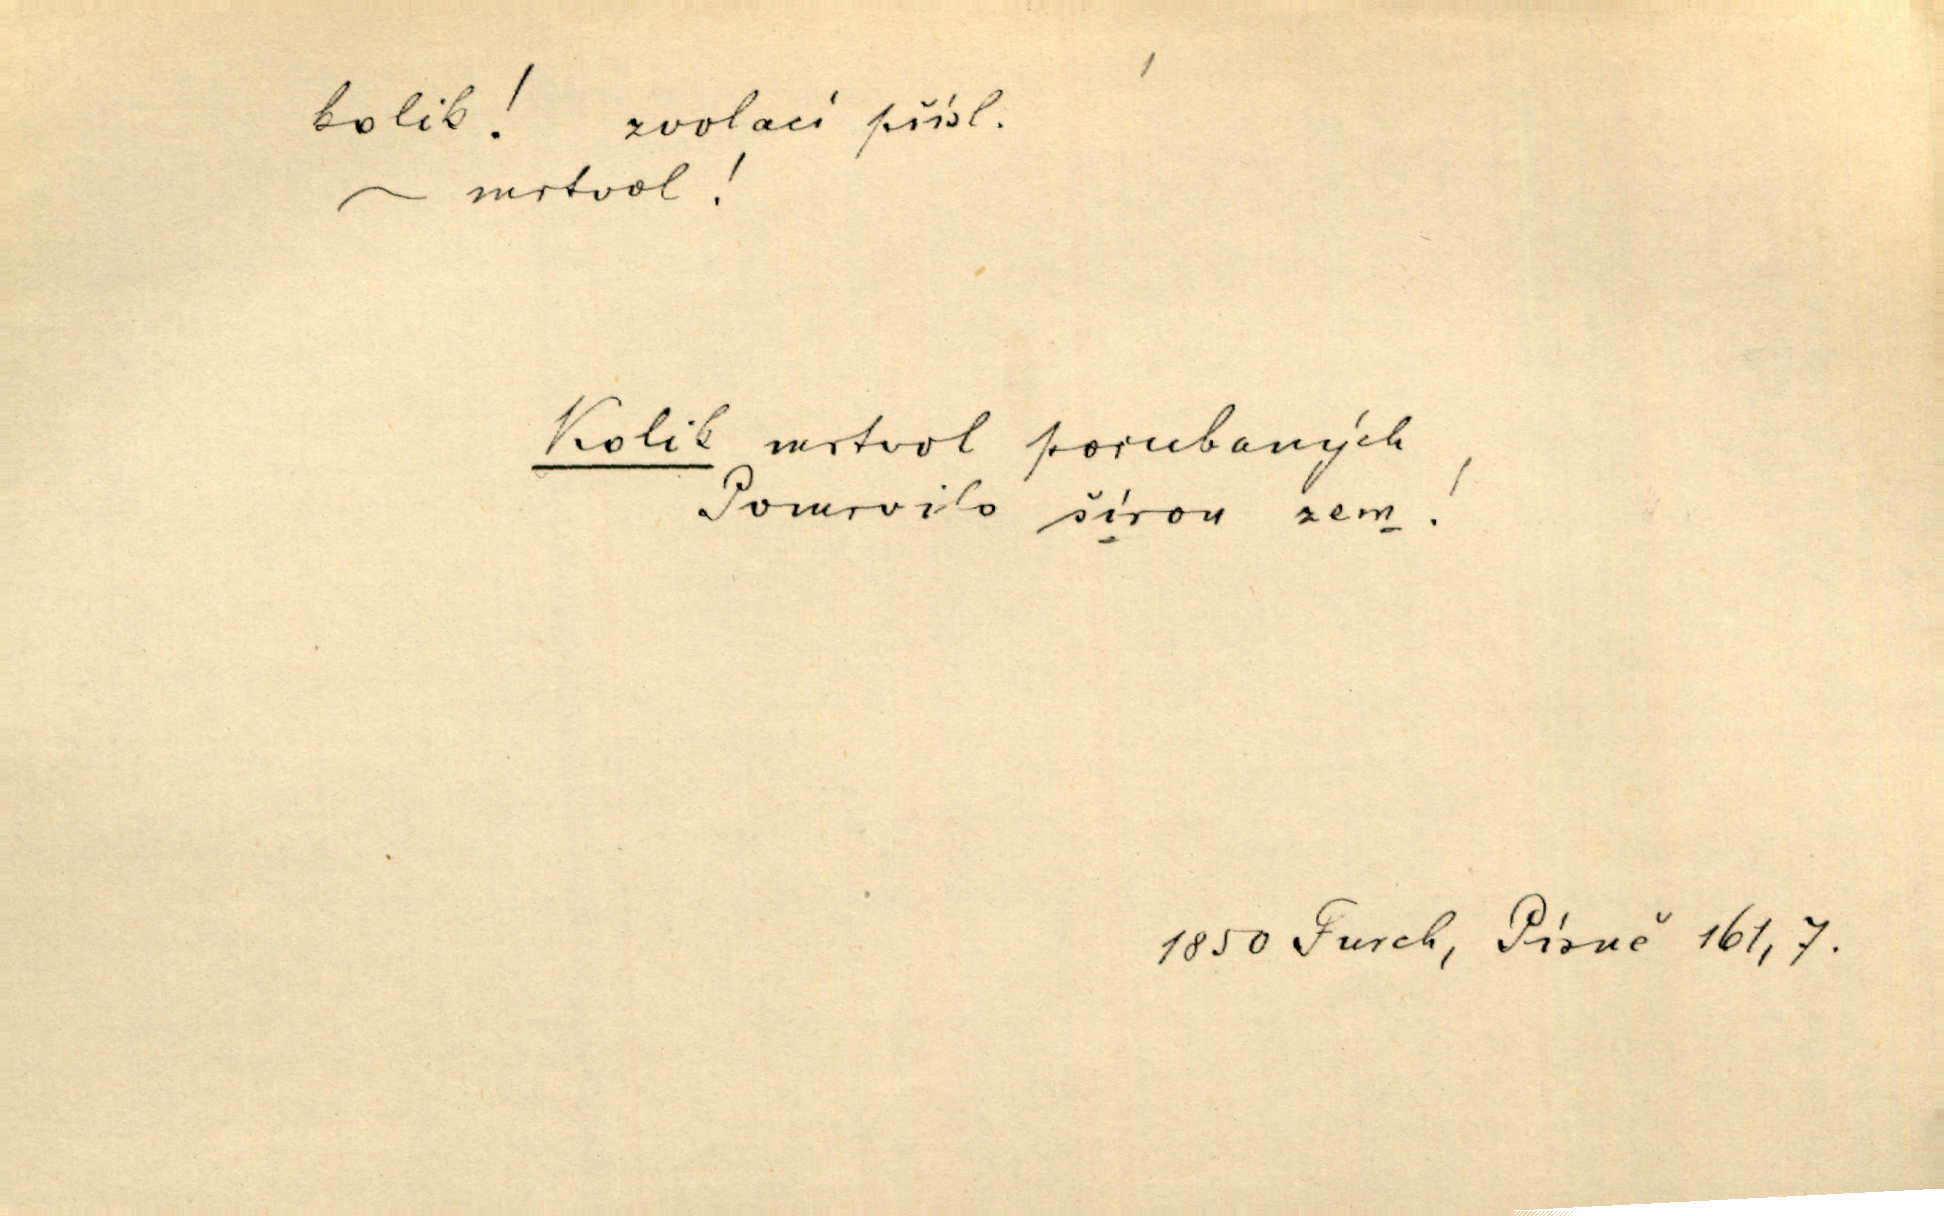 kolik! zvolací přísl.
~ mrtvol!
Kolik mrtvol porubaných,
Pomrvilo šírou zem!
1850 Furch, Písně 161, 7.